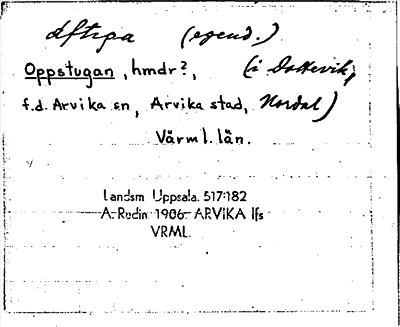 (egend.)
Oppstugan, hmdr?, (i Dottevik,
f.d. Arvika sn, Arvika stad, Nordal)
Värml. län.
Landsm. Uppsala. 517:182
A. Rudin 1906 ARVIKA lfs
VRML.